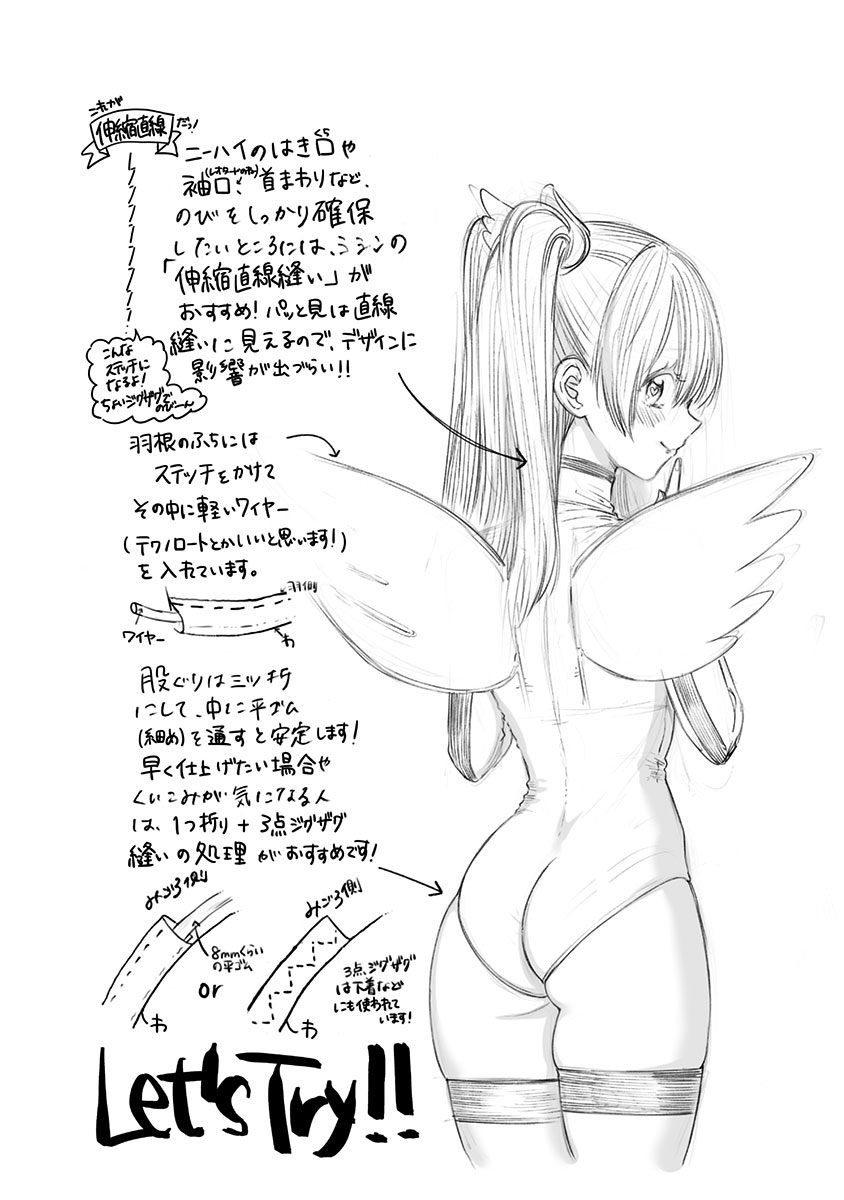 これが
伸縮直線
だっ!
ニーハイのはき口や
袖口、首まわりなど、
のびをしっかり確保
したいところには、ミシンの
「伸縮直線縫い」が
おすすめ!パッと見は直線
縫いに見えるので、デザインに
影響が出づらい!!
こんな
ステッチに
なるよ!
ちょいジグザグで
のびーん
羽根のふちには
ステッチをかけて
その中に軽いワイヤー
(テクノロートとかいいと思います!)
を入れています。
羽側
ワイヤー
わ
股ぐりは三ツ折
にして、中に平ゴム
(細め)を通すと安定します!
早く仕上げたい場合や
くいこみが気になる人
は、1つ折り+3点ジグザグ
縫いの処理がおすすめです!
みごろ側
8mmくらい
の平ゴム
わ
or
みごろ側
3点ジグザグ
は下着など
にも使われて
います!
わ
Let's Try!!